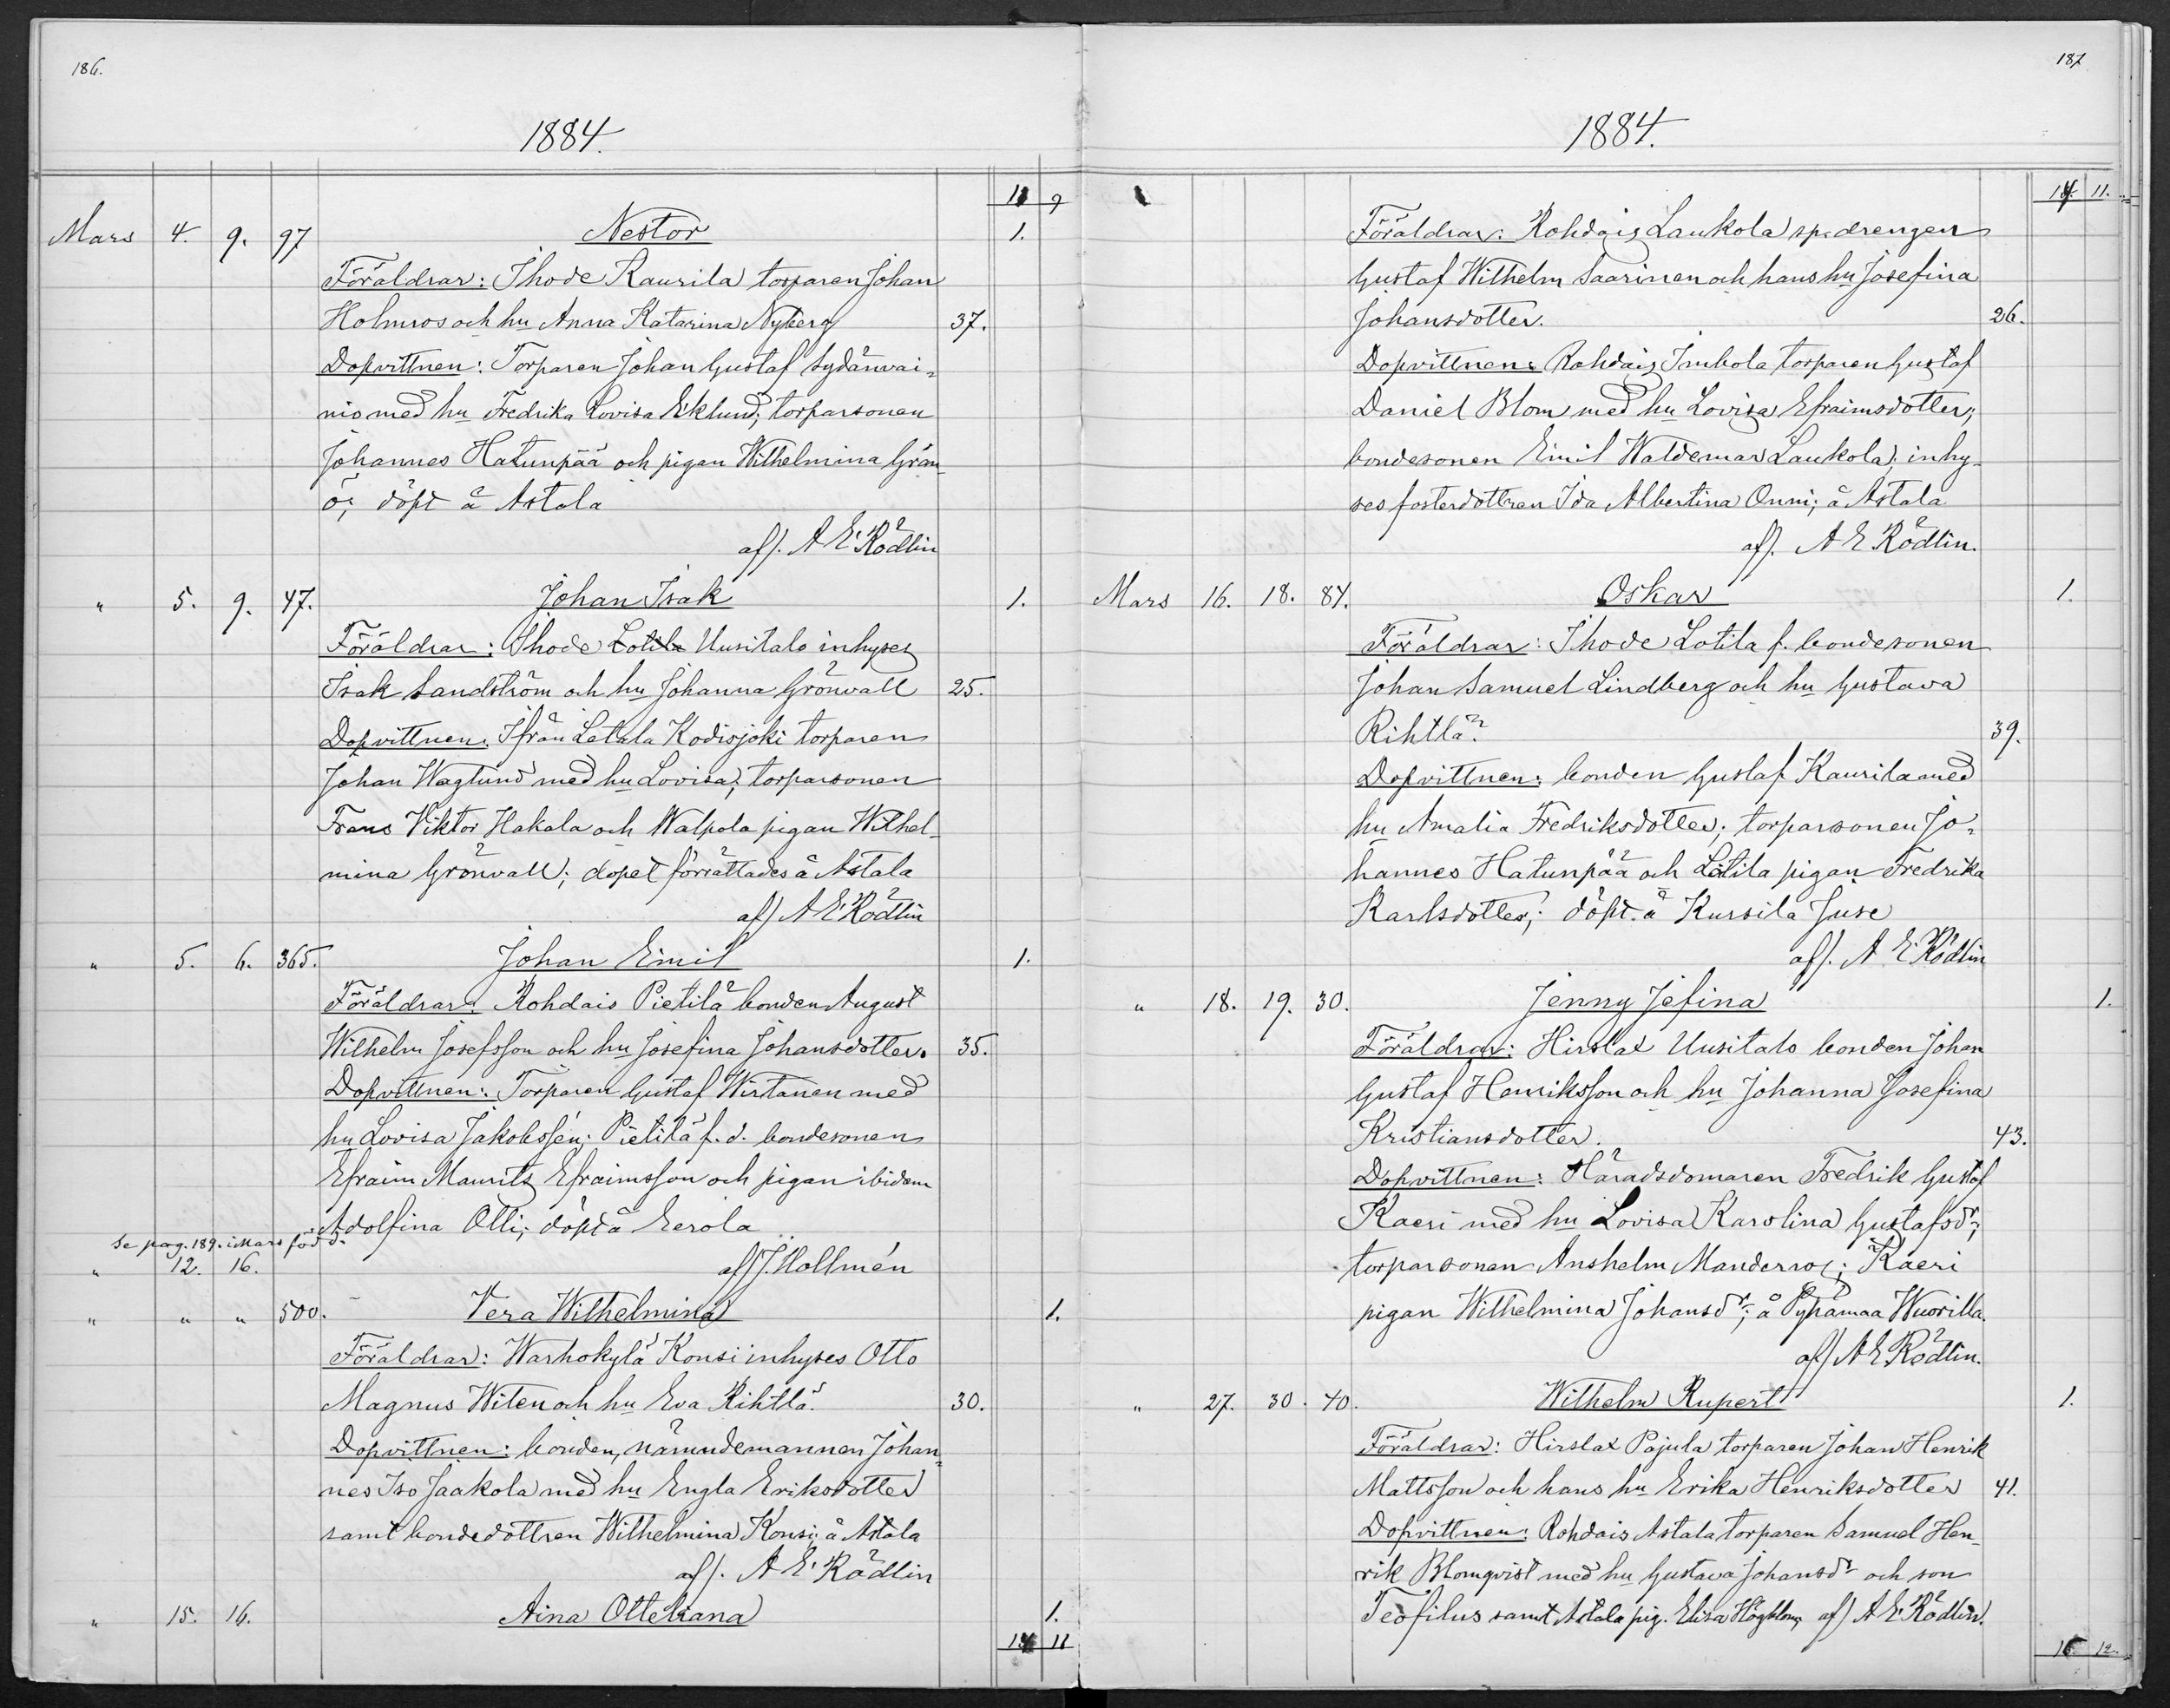 186.
1884.
11 9
Mars 4. 9. 97 Nestor 1.
Föräldrar: Ihode Kaurila torparen Johan
Holmros och hu Anna Katarina Nyberg 37.
Dopvittnen: Torparen Johan Gustaf Sydänvai-
nio med hu Fredrika Lovisa Eklund; torparsonen
Johannes Hatunpää och pigan Wilhelmina Grön-
ö; döpt å Astala
af/. A E Rödlin
" 5. 9. 47. Johan Isak 1.
Föräldrar: Ihode Lotila Uusitalo inhyses
Isak Sandström och hu Johanna Grönvall 25.
Dopvittnen: Ifrån Letala Kodisjoki torparen
Johan Waglund med hu Lovisa; torparsonen
Frans Viktor Hakala och Walpola pigan Wilhel-
mina Grönvall; dopet förrättades å Astala
af/ A E Rödlin
" 5. 6. 365. Johan Emil 1.
Föräldrar: Rohdais Pietilä bonden August
Wilhelm Josefsson och hu Josefina Johansdotter. 35.
Dopvittnen: Torparen Gustaf Wirtanen med
hu Lovisa Jakobssén; Pietilä f.d. bondesonen
Efraim Maurits Efraimsson och pigan ibidem
Adolfina Olli; döpt å Eerola
Se pag. 189. i Mars född.
" 12. 16. af/ J. Hollmén
" " " 500. Vera Wilhelmina 1.
Föräldrar: Warhokylä Konsi inhyses Otto
Magnus Witen och hu Eva Rihtlä. 30.
Dopvittnen: bonden, nämndemannen Johan-
nes Iso Jaakola med hu Engla Eriksdotter
samt bondedottren Wilhelmina Konsi; å Astala
af/. A E Rödlin
" 15. 16. Aina Otteliana 1.
14 11
187
1884.
14 11.
Föräldrar: Rohdais Laukola sp. drengen
Gustaf Wilhelm Saarinen och hans hu Josefina
Johansdotter. 26.
Dopvittnen: Rohdais Imbola torparen Gustaf
Daniel Blom med hu Lovisa Efraimsdotter;
bondesonen Emil Waldemar Laukola; inhy-
ses fosterdottren Ida Albertina Onni; å Astala
af/. A E Rödlin.
Mars 16. 18. 84. Oskar 1.
Föräldrar: Ihode Lotila f. bondesonen
Johan Samuel Lindberg och hu Gustava
Rihtlä. 39.
Dopvittnen: bonden Gustaf Kaurila med
hu Amalia Fredriksdotter; torparsonen Jo-
hannes Hatunpää och Lotila pigan Fredrika
Karlsdotter; döpt. å Kursila Juse
af/. A E Rödlin
" 18. 19. 30. Jenny Jefina 1.
Föräldrar: Hirslax Uusitalo bonden Johan
Gustaf Henriksson och hu Johanna Josefina
Kristiansdotter. 43.
Dopvittnen: Häradsdomaren Fredrik Gustaf
Kaeri med hu Lovisa Karolina Gustafsdr;
torparsonen Anshelm Manderros; Kaeri
pigan Wilhelmina Johansdr; å Pyhämaa Wuorilla.
af/ A E Rödlin.
" 27. 30. 40. Wilhelm Rupert 1.
Föräldrar: Hirslax Pajula torparen Johan Henrik
Mattsson och hans hu Erika Henriksdotter 41.
Dopvittnen: Rohdais Astala torparen Samuel Hen-
rik Blomqvist med hu Gustava Johansdr och son
Teofilus samt Astala pig. Elisa Högblom; af/ A E Rödlin.
15 12.